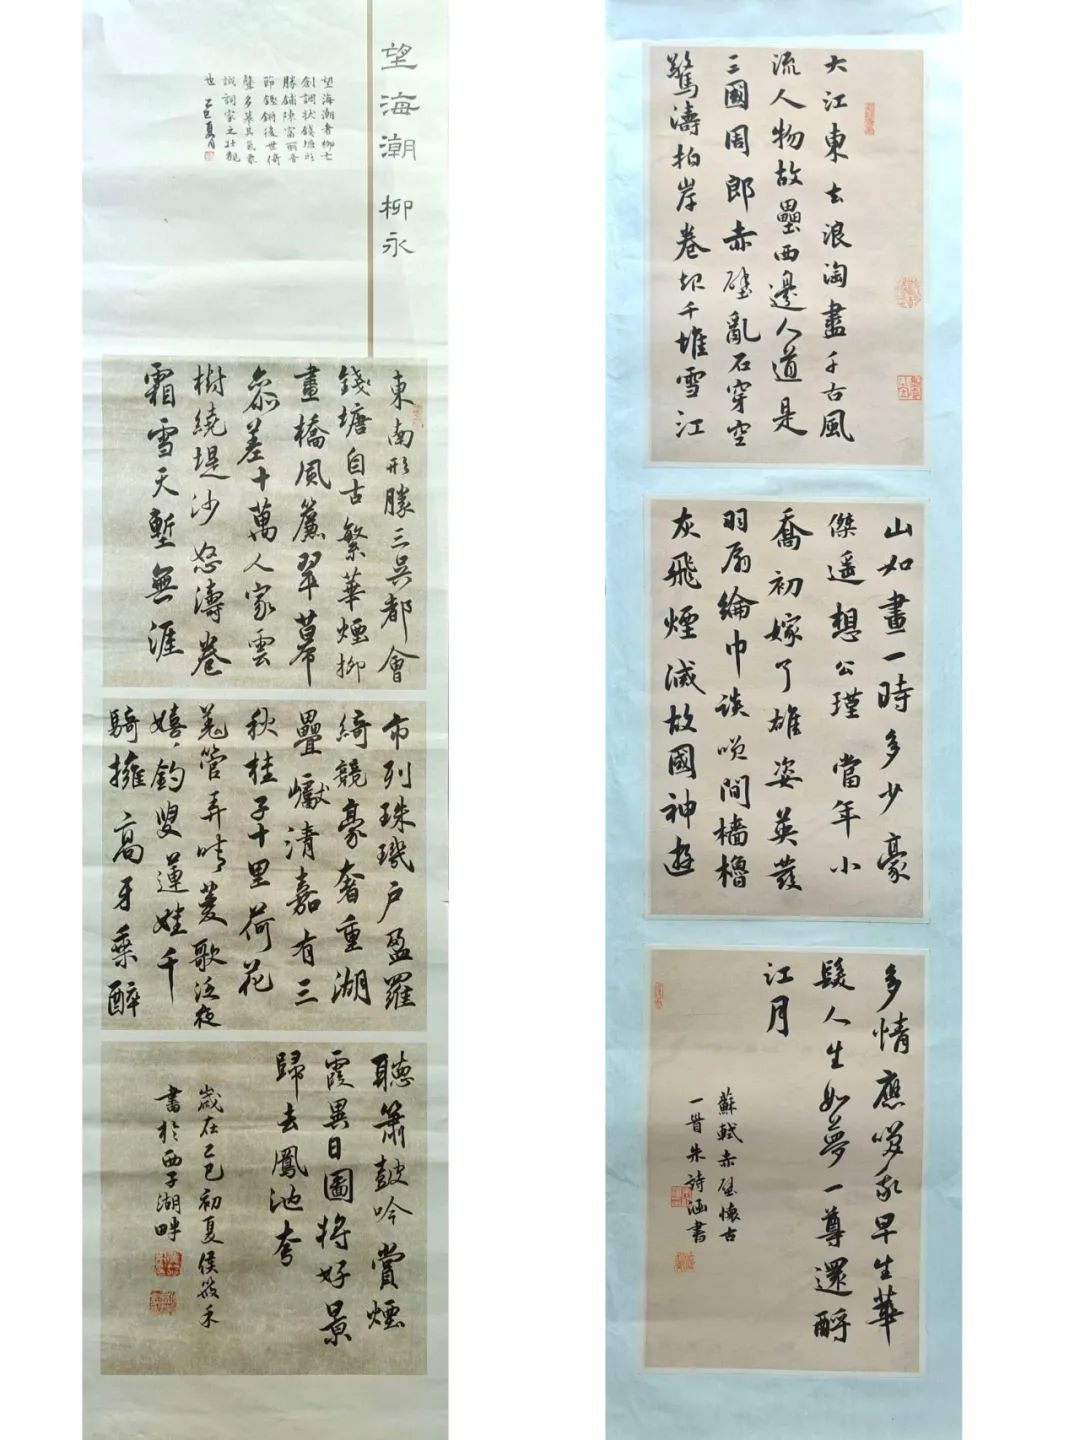 望海潮 柳永
望海潮者柳七
創調狀錢塘形
勝鋪陳富麗音
節鏗鏘後世倚
聲多慕其氣象
誠詞家之壯觀
也 乙巳夏月
東南形勝三吳都會
錢塘自古繁華煙柳
畫橋風簾翠幕
參差十萬人家雲
樹繞堤沙怒濤卷
霜雪天塹無涯
市列珠璣戶盈羅
綺競豪奢重湖
疊巘清嘉有三
秋桂子十里荷花
羌管弄晴菱歌泛夜
嬉、釣叟蓮娃千
騎擁高牙乘醉
聽簫鼓吟賞煙
霞異日圖將好景
歸去鳳池夸
歲在乙巳初夏侯筱禾
書於西子湖畔
大江東去浪淘盡千古風
流人物故壘西邊人道是
三國周郎赤壁亂石穿空
驚濤拍岸卷起千堆雪江
山如畫一時多少豪
傑遥想公瑾當年小
喬初嫁了雄姿英發
羽扇綸巾談笑間檣櫓
灰飛煙滅故國神遊
多情應笑我早生華
髮人生如夢一尊還酹
江月
蘇軾赤壁懷古
一首朱詩涵書